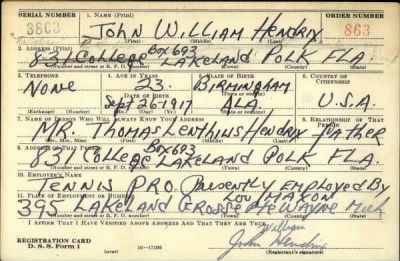 SERIAL NUMBER 1. NAME (Print) ORDER NUMBER
3863 John William Hendrix 863
(First) (Middle) (Last)
2. ADDRESS (Print)
Box 693
831 College Lakeland Polk Fla.
(Number and street or R. F. D. number) (Town) (County) (State)
3. TELEPHONE 4. AGE IN YEARS 5. PLACE OF BIRTH 6. COUNTRY OF CITIZENSHIP
None 23 Birmingham
DATE OF BIRTH (Town or county)
Sept 26-1917 Ala. U.S.A.
(Exchange) (Number) (Mo.) (Day) (Yr.) (State or country)
7. NAME OF PERSON WHO WILL ALWAYS KNOW YOUR ADDRESS 8. RELATIONSHIP OF THAT PERSON
Mr. Thomas Lenthius Hendrix Father
(Mr., Mrs., Miss) (First) (Middle) (Last)
9. ADDRESS OF THAT PERSON
Box 693
831 College Lakeland Polk Fla.
(Number and street or R. F. D. number) (Town) (County) (State)
10. EMPLOYER'S NAME
Tennis Pro. Presently Employed By
11. PLACE OF EMPLOYMENT OR BUSINESS Lou Maxon
395 Lakeland Grosse Pte Wayne Mich
(Number and street or R. F. D. number) (Town) (County) (State)
I AFFIRM THAT I HAVE VERIFIED ABOVE ANSWERS AND THAT THEY ARE TRUE.
REGISTRATION CARD William
D. S. S. Form 1 16-17105 John Hendrix